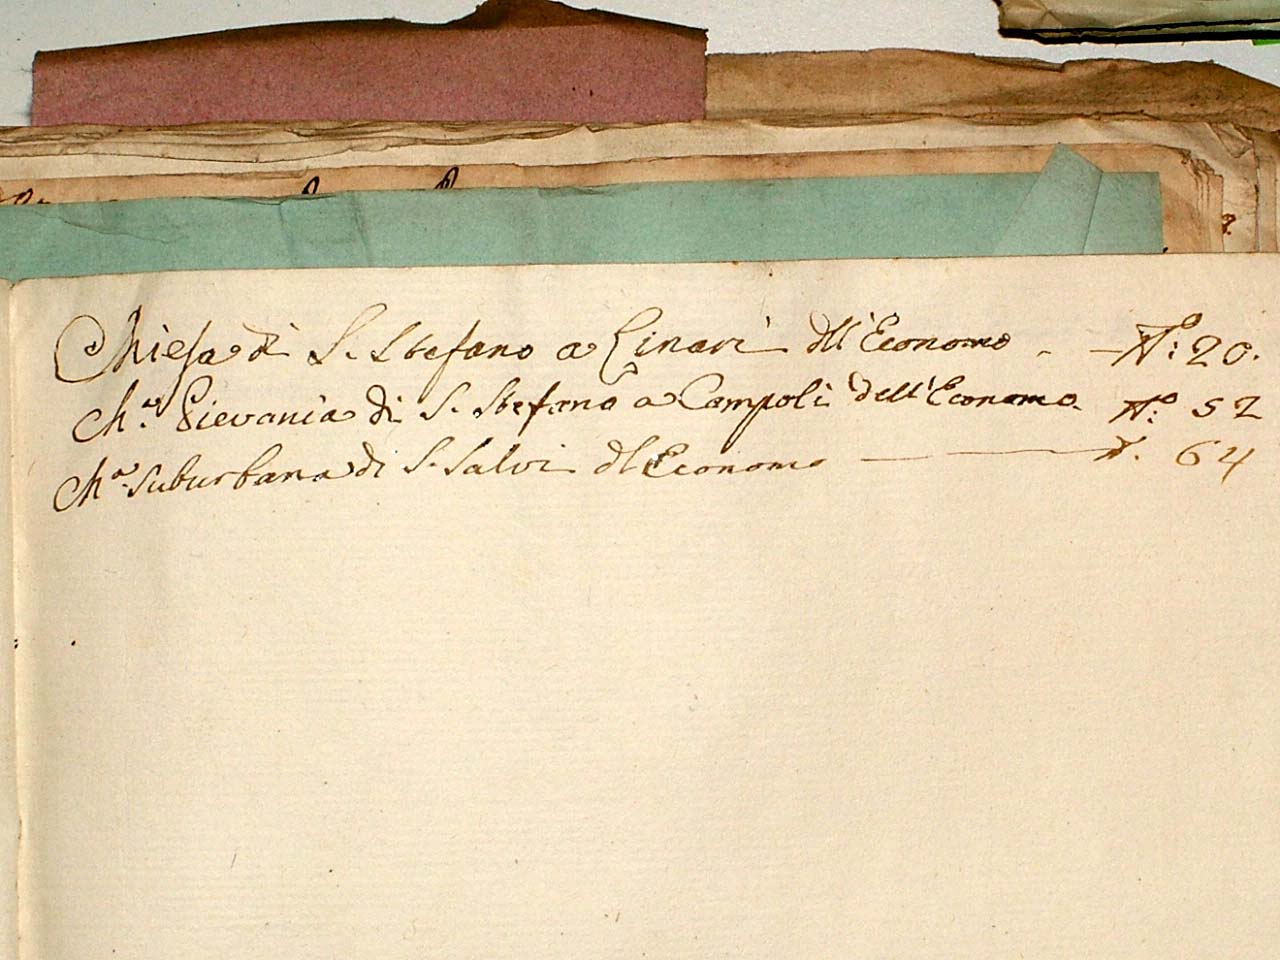 Chiesa di S. Stefano a Linari dll'Economo - - N.o: 20.
Ch.a Pievania di S. Stefano a Campoli dell'Economo. N.o: 52
Ch.a Suburbana di S. Salvi dl Economo — N. 64